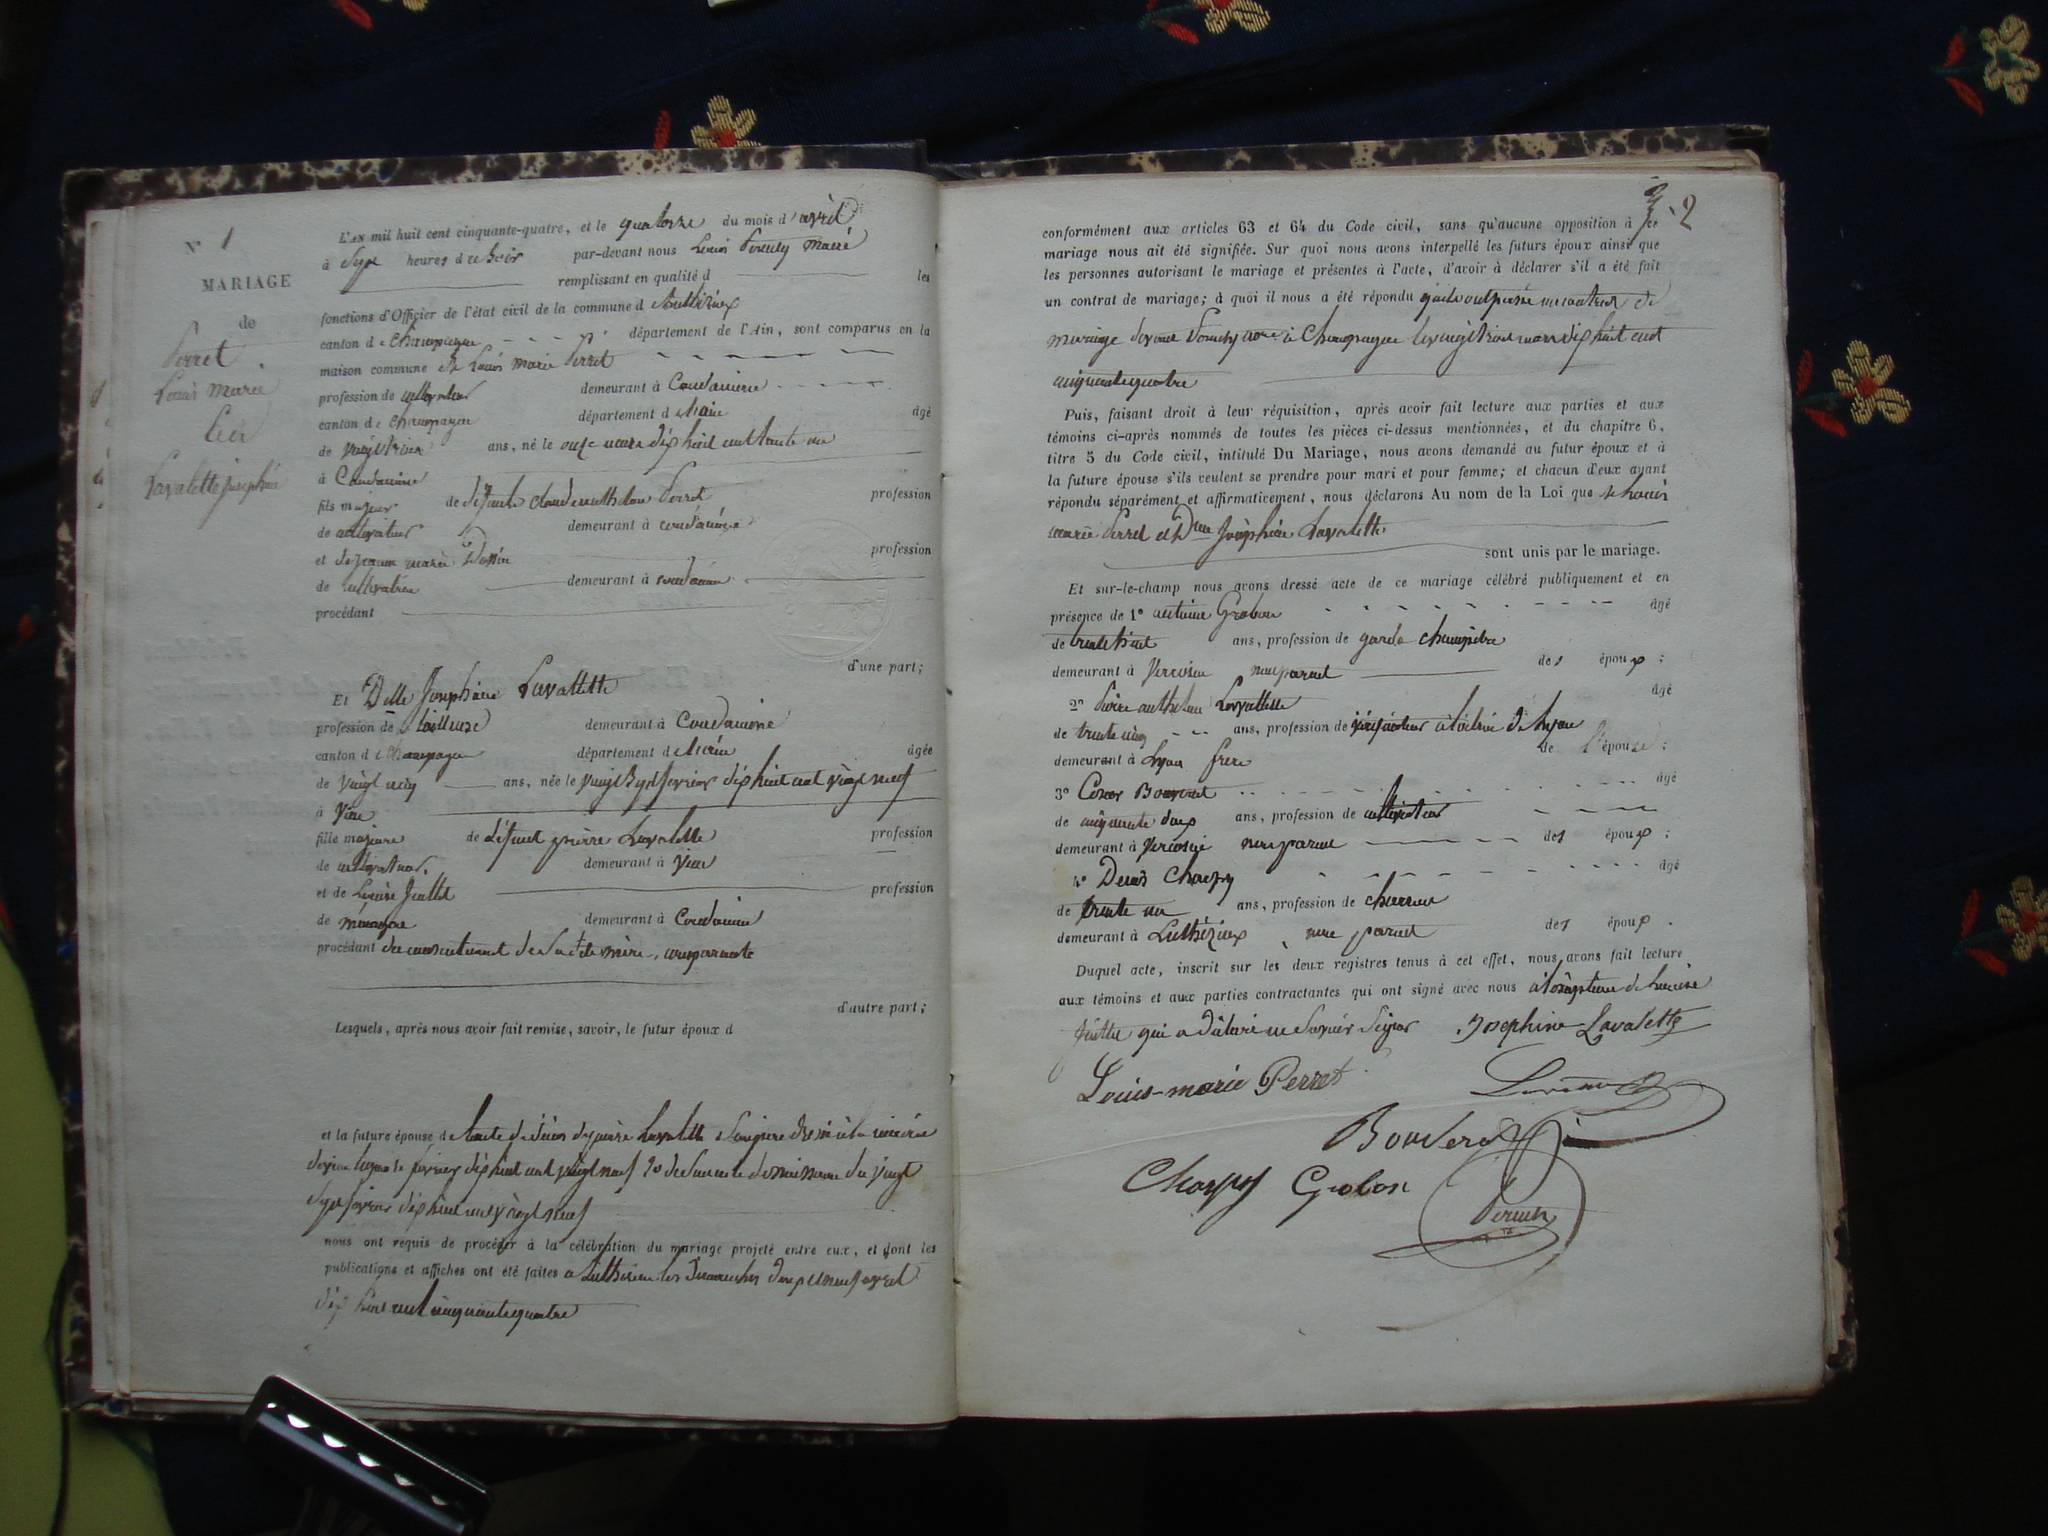 N° 1
MARIAGE
de
Perret
Louis Marie
Et
Lavalette Joséphine
L'AN mil huit cent cinquante-quatre, et le quatorze du mois d'avril
à Sept heures du Soir par-devant nous Louis maire
remplissant en qualité d les
fonctions d'Officier de l'état civil de la commune d
canton de Champagne département de l'Ain, sont comparus en la
maison commune Sr Louis Marie Perret
profession de cultivateur demeurant à
canton de Champagne département de l'ain âgé
de vingt trois ans, né le onze mars dix huit cent trente un
à
fils majeur de défunt Claude anthelme Perret profession
de cultivateur demeurant à
et de jeanne marie profession
de cultivatrice demeurant à
procédant
d'une part;
Et Delle Joséphine Lavallette
profession de tailleuse demeurant à
canton de Champagne département de l'ain âgée
de vingt cinq ans, née le vingt Sept fevrier dix huit cent vingt neuf
à Vieu
fille majeure de défunt pierre Lavalette profession
de cultivateur. demeurant à Vieu
et de Louise Juillet profession
de ménagère demeurant à
procédant du consentement de Sa dite mère, comparante
d'autre part;
Lesquels, après nous avoir fait remise, savoir, le futur époux d
et la future épouse de l'acte de décès de pierre Lavalette
fevrier dix huit cent vingt neuf 2o de Son acte de naissance du vingt
Sept fevrier dix huit cent vingt neuf
nous ont requis de procéder à la célébration du mariage projeté entre eux, et dont les
publications et affiches ont été faites a les Dimanches deux et neuf avril
dix huit cent cinquante quatre
2
conformément aux articles 63 et 64 du Code civil, sans qu'aucune opposition à ce
mariage nous ait été signifiée. Sur quoi nous avons interpellé les futurs époux ainsi que
les personnes autorisant le mariage et présentes à l'acte, d'avoir à déclarer s'il a été fait
un contrat de mariage; à quoi il nous a été répondu qu'ils ont passé un contrat de
mariage devant à Champagne le vingt trois mars dix huit cent
cinquante quatre
Puis, faisant droit à leur réquisition, après avoir fait lecture aux parties et aux
témoins ci-après nommés de toutes les pièces ci-dessus mentionnées, et du chapitre 6,
titre 5 du Code civil, intitulé Du Mariage, nous avons demandé au futur époux et à
la future épouse s'ils veulent se prendre pour mari et pour femme; et chacun d'eux ayant
répondu séparément et affirmativement, nous déclarons Au nom de la Loi que Sr Louis
marie Perret et Dlle Joséphine Lavalette
sont unis par le mariage.
Et sur-le-champ nous avons dressé acte de ce mariage célébré publiquement et en
présence de 1° antoine Grobon âgé
de trente huit ans, profession de garde champêtre
demeurant à non parent des époux;
2° Pierre anthelme Lavallette âgé
de trente cinq ans, profession de de Lyon
demeurant à Lyon frere de l'épouse;
3° âgé
de cinquante deux ans, profession de cultivateur
demeurant à non parent des époux;
4° Denis Charpy âgé
de trente un ans, profession de charron
demeurant à non parent des époux.
Duquel acte, inscrit sur les deux registres tenus à cet effet, nous avons fait lecture
aux témoins et aux parties contractantes qui ont signé avec nous à l'exception de Louise
Juillet qui a déclaré ne Savoir Signer Joséphine Lavalette
Louis-marie Perret
Charpy Grobon